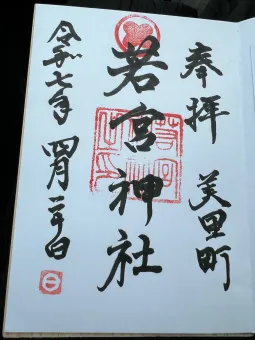 奉拝 美里町
若宮神社
令和七年 四月二十日